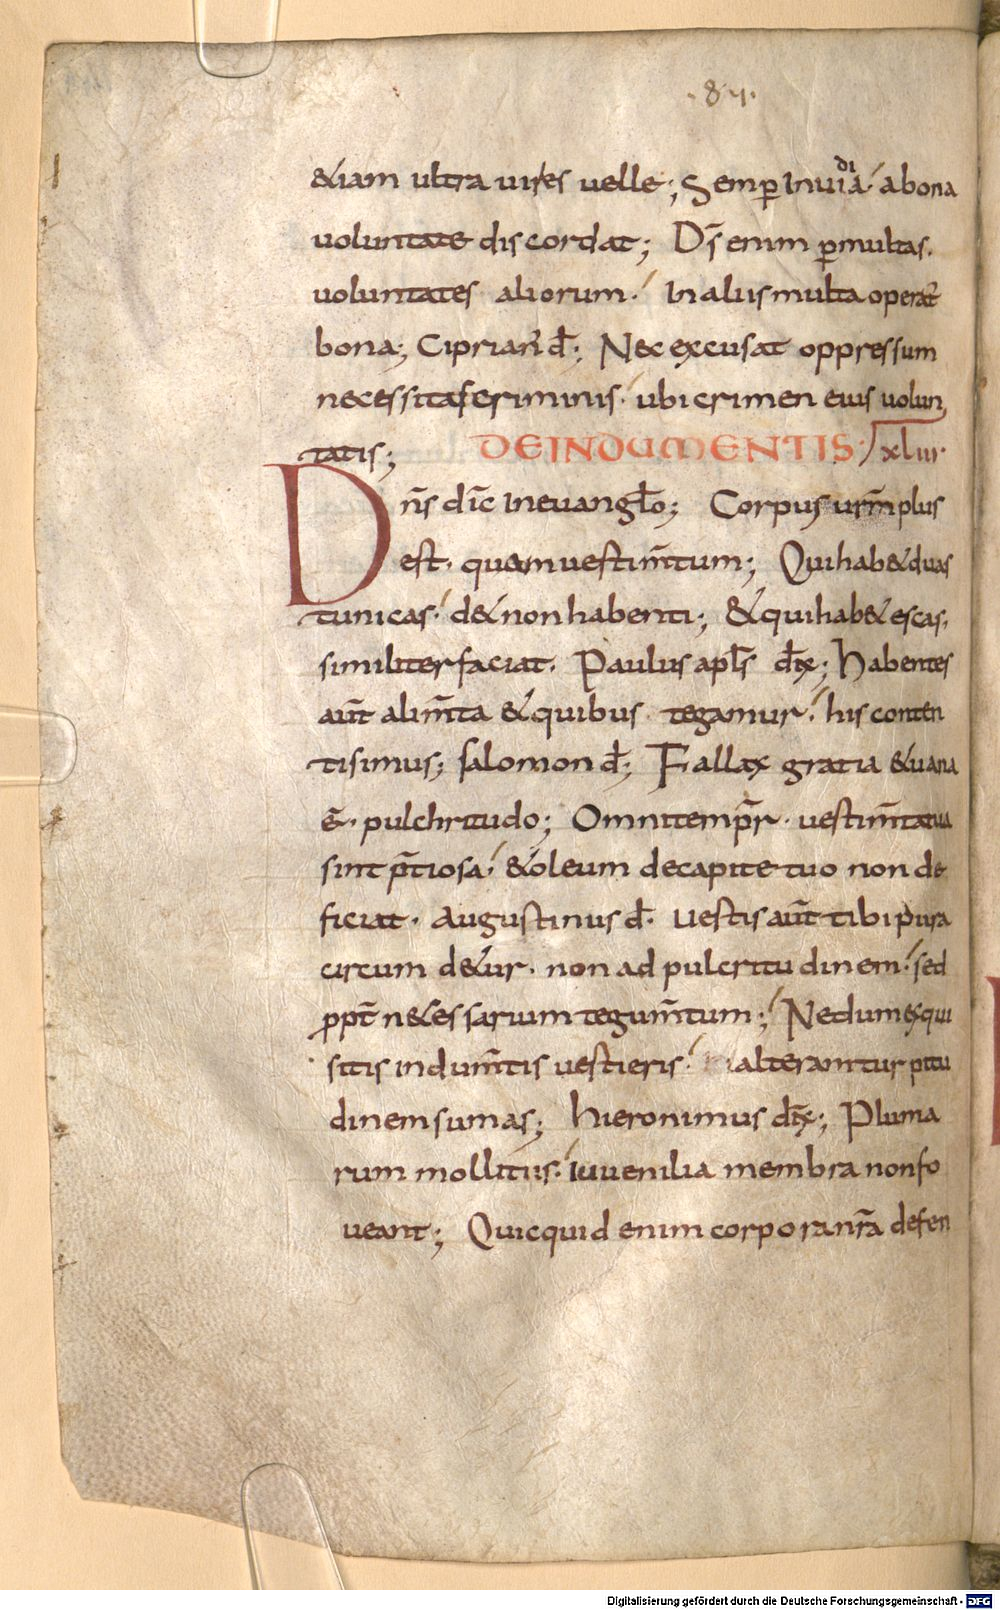 · 84 ·
&iam ultra uires uelle; Semp̱ inuidia abona
uoluntate discordat; D̄s enim p̱multas.
uoluntates aliorum. In aliis multa operat̄
bona; Ciprian' đ; Nec excusat oppressum
necessitas criminis. ubi crimen eius uolun
tatis; DE INDUMENTIS. xliii.
Dn̄s dic̄ in euangłło; Corpus ur̄m plus
est. quam uestim̄tum; Qui hab& duas
tunicas. d& non habenti; & qui hab& escas.
similiter faciat. Paulus apłs đix; habentes
aūt alim̄ta & quibus tegamur. his conten
ti simus; salomon đ; Fallax gratia & uana
ē. pulchritudo; Omni temp̄r. uestim̄ta tua
sint p̄tiosa. & oleum de capite tuo non de
ficiat. augustinus đ. uestis aūt tibi pura
circumd&ur. non ad pulcritudinem. sed
p̱pt̄ n&essarium tegum̄tum; Ne dum exqui
sitis indum̄tis uestieris. alteram turpitu
dinem sumas; hieronimus đix; Pluma
rum mollitiis. iuuenilia membra non fo
ueant; Quicquid enim corpora nr̄a defen
Digitalisierung gefördert durch die Deutsche Forschungsgemeinschaft - DFG